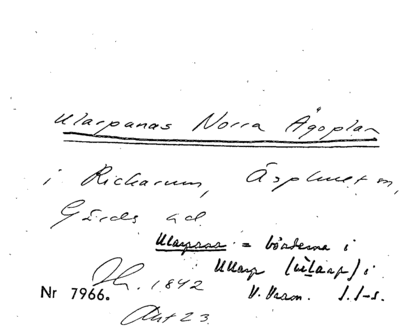 Ularpanas Norra Ägoplan
i Rickarum, Äsphult m,
Gärds hd
Ularparna = bönderna i
Ullarp i
V. Vram.
1842
Nr 7966.
Akt 23